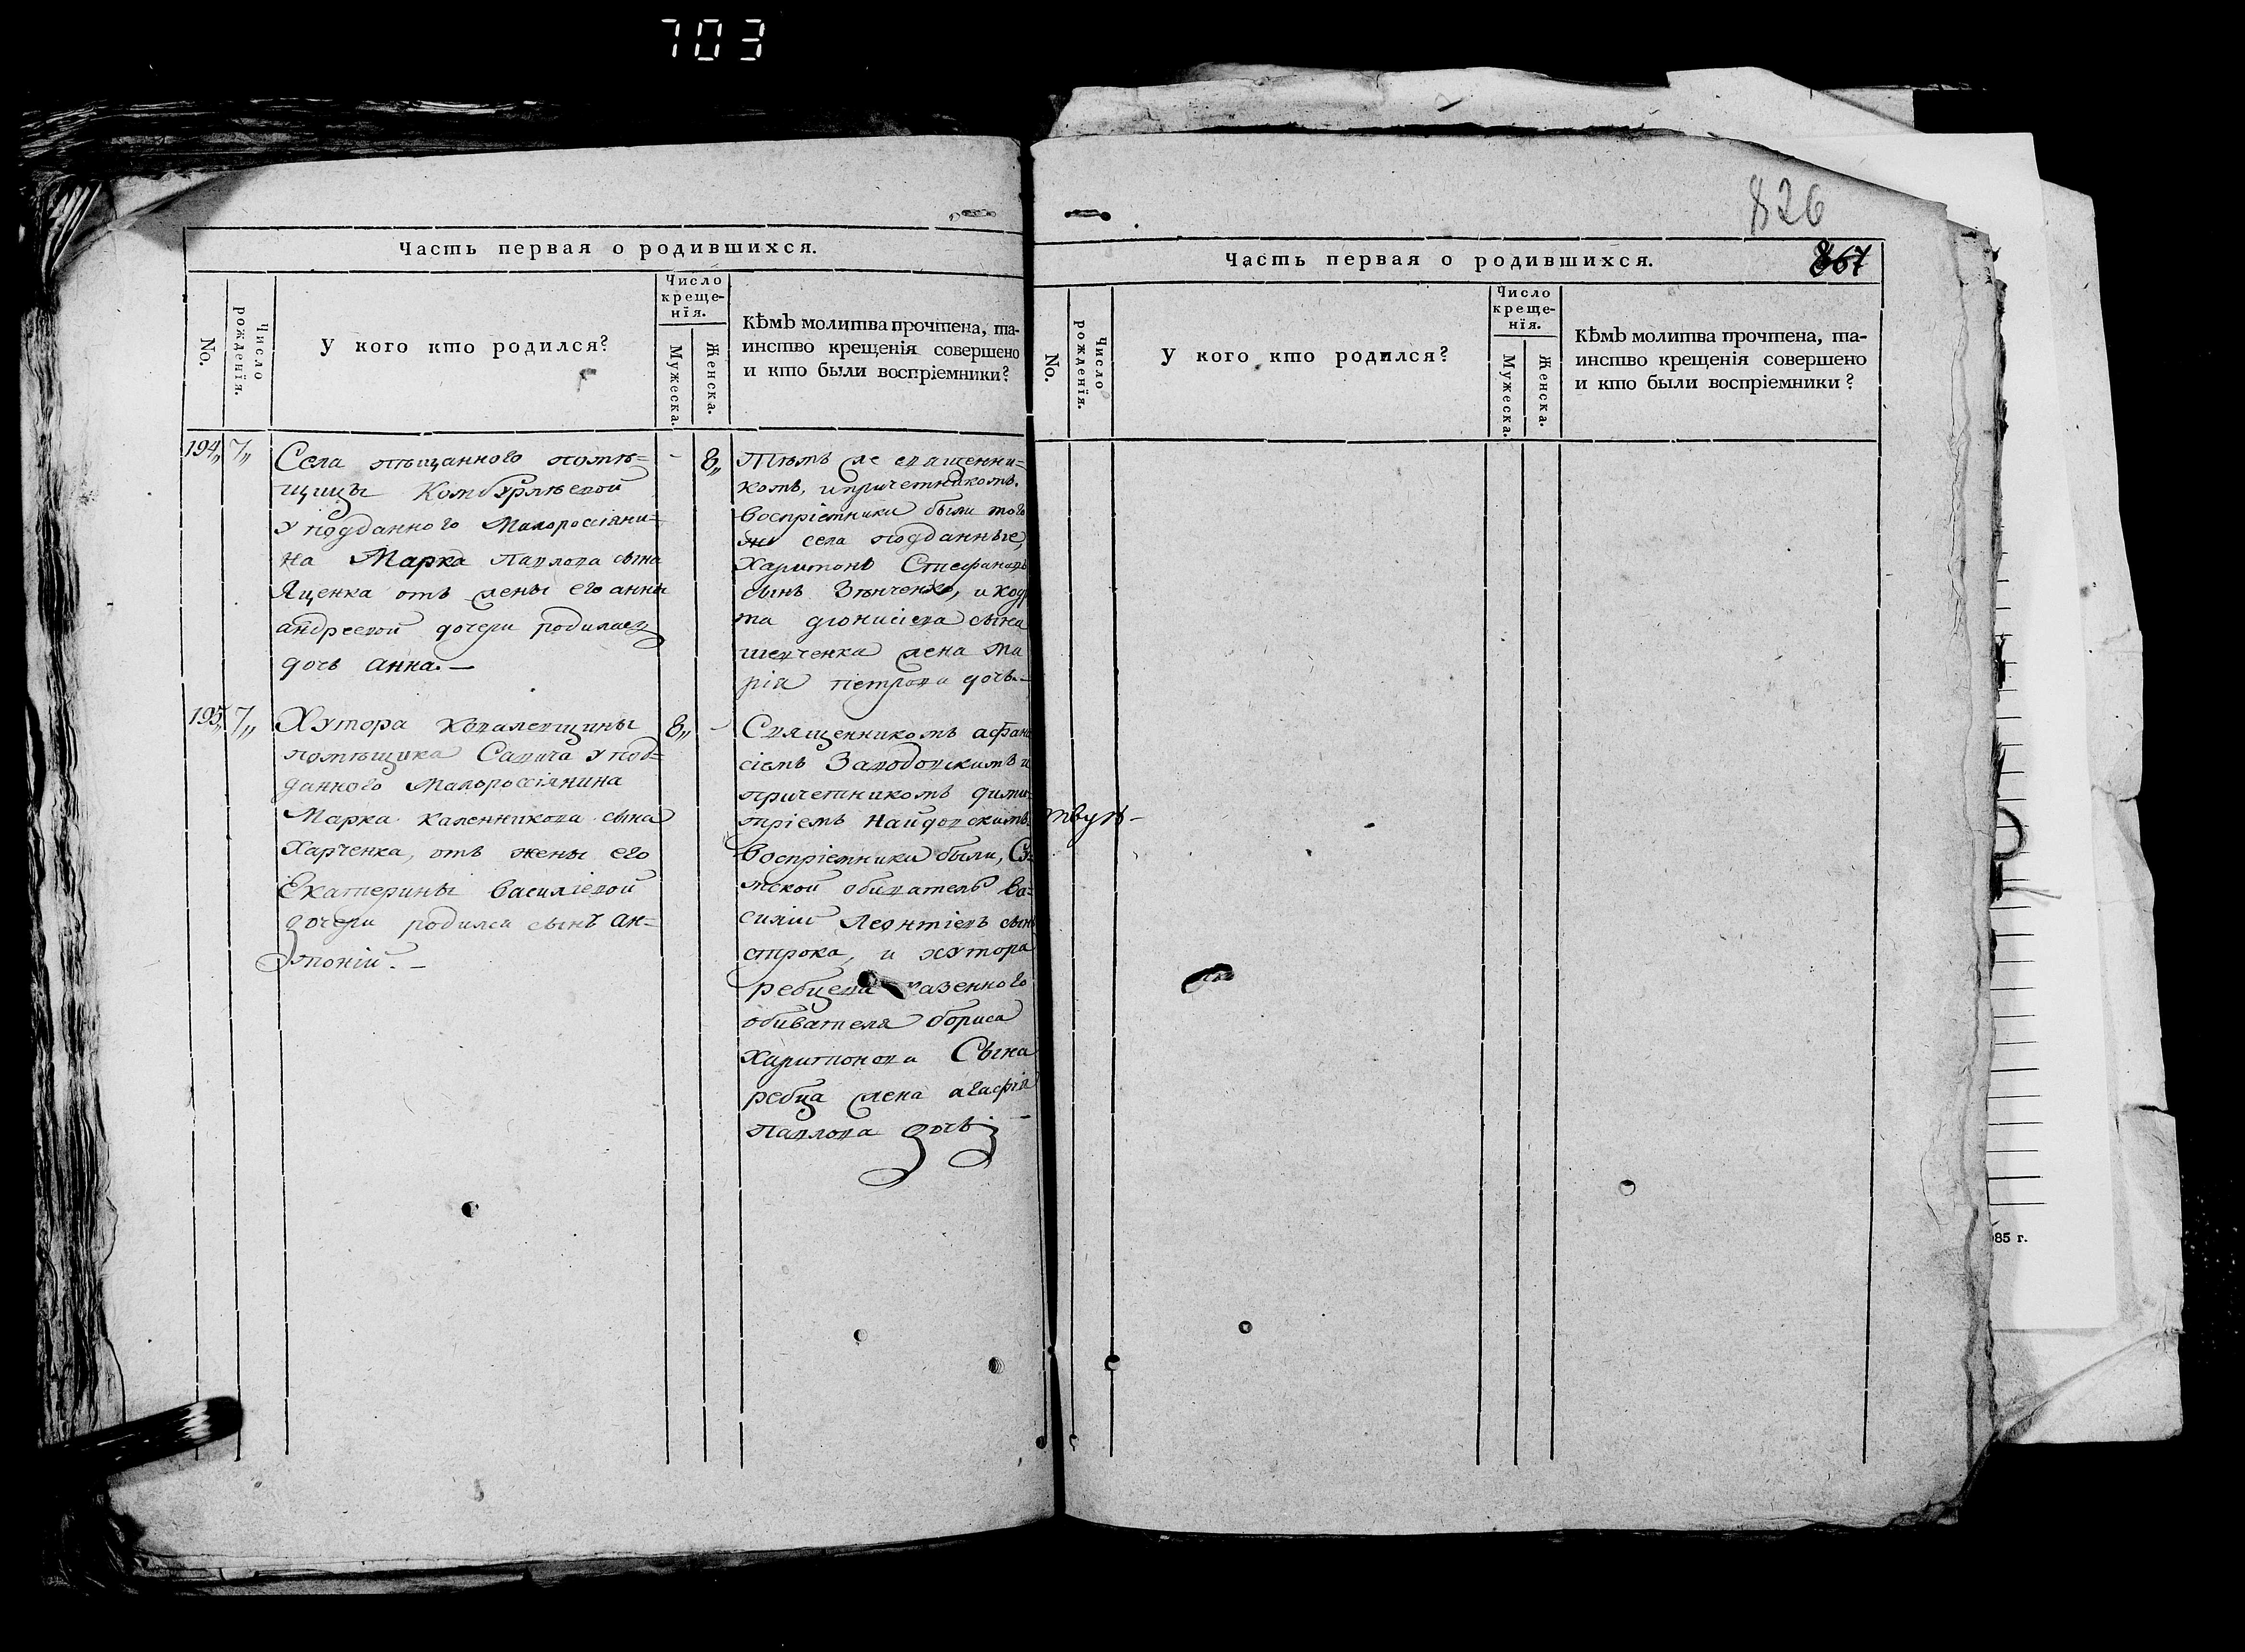 703
Часть первая о родившихся.
No.
Число рожденія.
У кого кто родился?
Число
креще-
нія.
Мужеска.
Женска.
Кѣмъ молитва прочтена, та-
инство крещенія совершено
и кто были воспріемники?
194,, 7,,
Села пѣщанного помѣ-
щицы Комбурлѣевой
у подданного Малороссіяни-
на Марка Павлова сына
Яценка отъ жены его анны
андреевой дочери родилась
дочь анна. —
- 8,,
Тѣмъ же священни-
комъ, и причетникомъ.
воспріемники были того
же села подданные,
Харитонъ Стефановъ
сынъ Зѣнченко, и
діонисіева сына
шевченка жена Ма
рія петрова дочь. —
195,, 7,,
Хутора Ковалевщины
помѣщика Савича у под-
данного Малороссіянина
Марка Каленникова сына
Харченка, отъ жены его
Екатерины василіевой
дочери родился сынъ ан-
тоній. —
8,, -
Священникомъ афана
сіемъ Заводовскимъ и
причетникомъ дими-
тріемъ Найдовскимъ.
Воспріемники были,
мской обиватель ва-
силій Леонтіевъ сынъ
строка, и хутора
ребцева казенного
обивателя бориса
Харитонова Сына
ребца жена агафія
павлова дочь —
826
Часть первая о родившихся.
867
No.
Число рожденія.
У кого кто родился?
Число
креще-
нія.
Мужеска.
Женска.
Кѣмъ молитва прочтена, та-
инство крещенія совершено
и кто были воспріемники?
85 г.